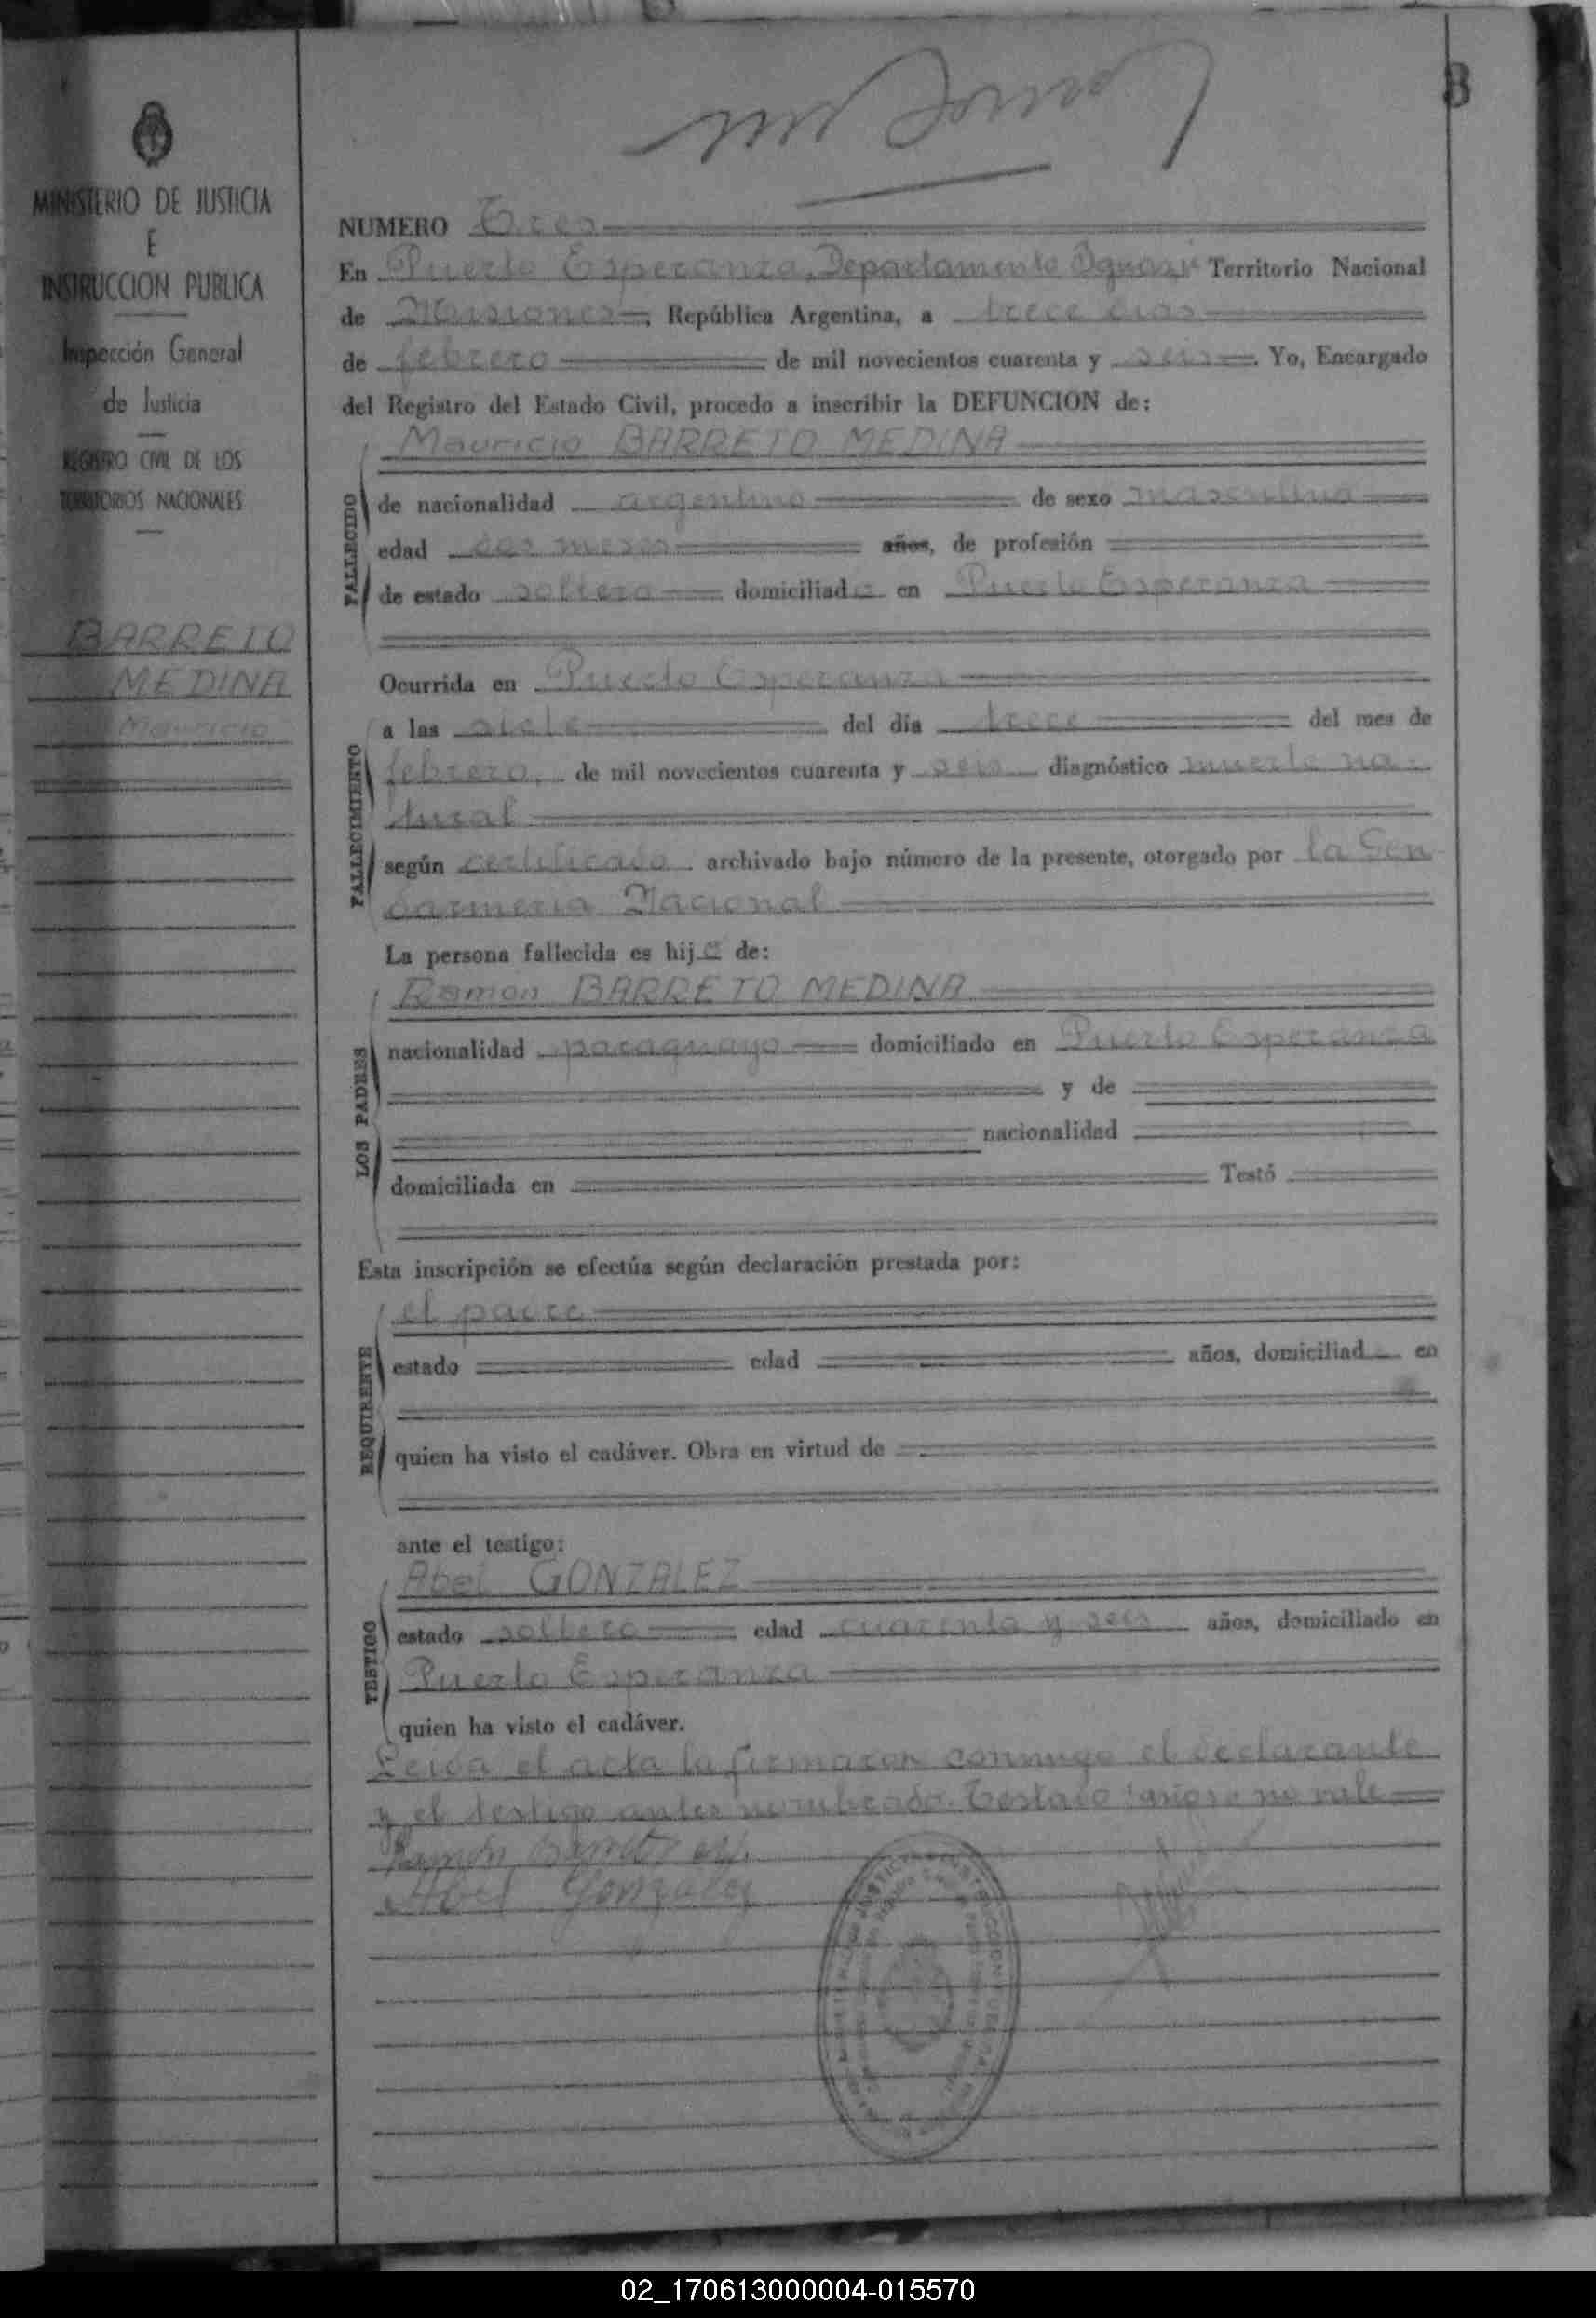 3
MINISTERIO DE JUSTICIA
E
INSTRUCCION PUBLICA
Inspección General
de Justicia
REGISTRO CIVIL DE LOS
TERRITORIOS NACIONALES
BARRETO
MEDINA
Mauricio
NUMERO Tres
En Puerto Esperanza, Departamento Iguazú Territorio Nacional
de Misiones, República Argentina, a trece días
de febrero de mil novecientos cuarenta y seis. Yo, Encargado
del Registro del Estado Civil, procedo a inscribir la DEFUNCION de:
Mauricio BARRETO MEDINA
FALLECIDO
de nacionalidad argentino de sexo masculino
edad dos meses años, de profesión
de estado soltero domiciliado en Puerto Esperanza
Ocurrida en Puerto Esperanza
FALLECIMIENTO
a las siete del día trece del mes de
febrero, de mil novecientos cuarenta y seis diagnóstico muerte na-
tural
según certificado archivado bajo número de la presente, otorgado por la Gen
darmeria Nacional
La persona fallecida es hijo de:
LOS PADRES
Ramon BARRETO MEDINA
nacionalidad paraguayo domiciliado en Puerto Esperanza
y de
nacionalidad
domiciliada en Testó
Esta inscripción se efectúa según declaración prestada por:
REQUIRENTE
el padre
estado edad años, domiciliad en
quien ha visto el cadáver. Obra en virtud de
ante el testigo:
TESTIGO
Abel GONZALEZ
estado soltero edad cuarenta y seis años, domiciliado en
Puerto Esperanza
quien ha visto el cadáver.
Leida el acta la firmaron conmigo el declarante
y el testigo antes nombrado. Testado: años: no vale
Ramón Barreto
Abel Gonzalez
02_170613000004-015570